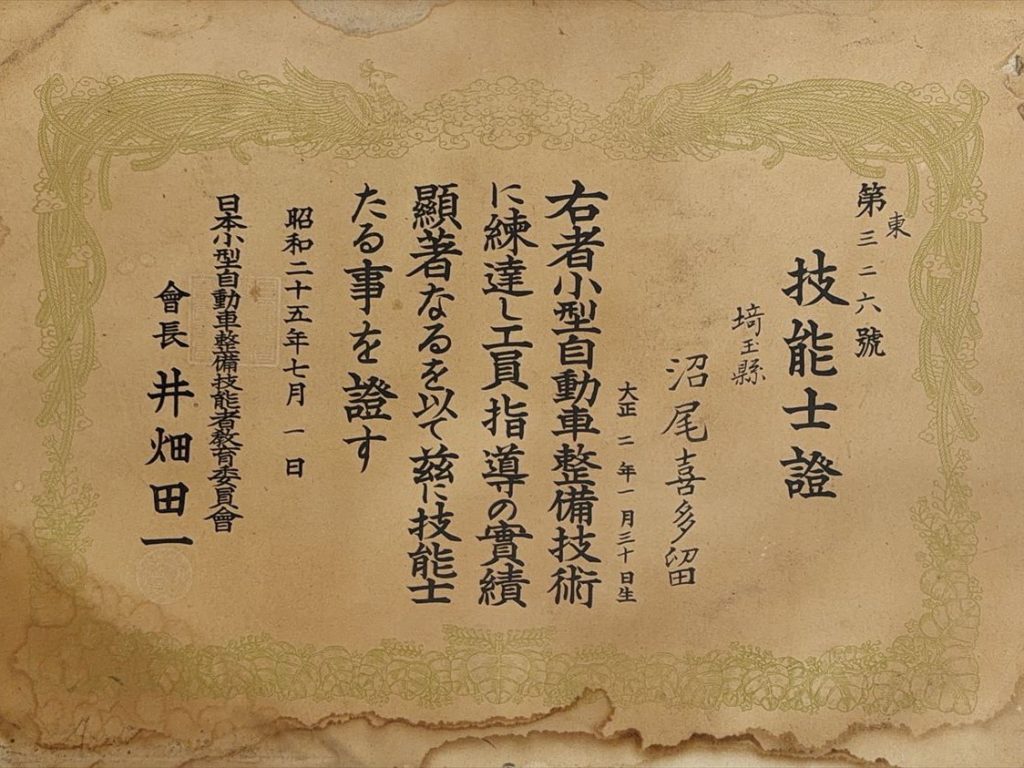 東
第三二六號
技能士證
埼玉縣
沼尾喜多留
大正二年一月三十日生
右者小型自動車整備技術
に練達し工員指導の實績
顯著なるを以て茲に技能士
たる事を證す
昭和二十五年七月一日
日本小型自動車整備技能者教育委員會
會長 井畑田一